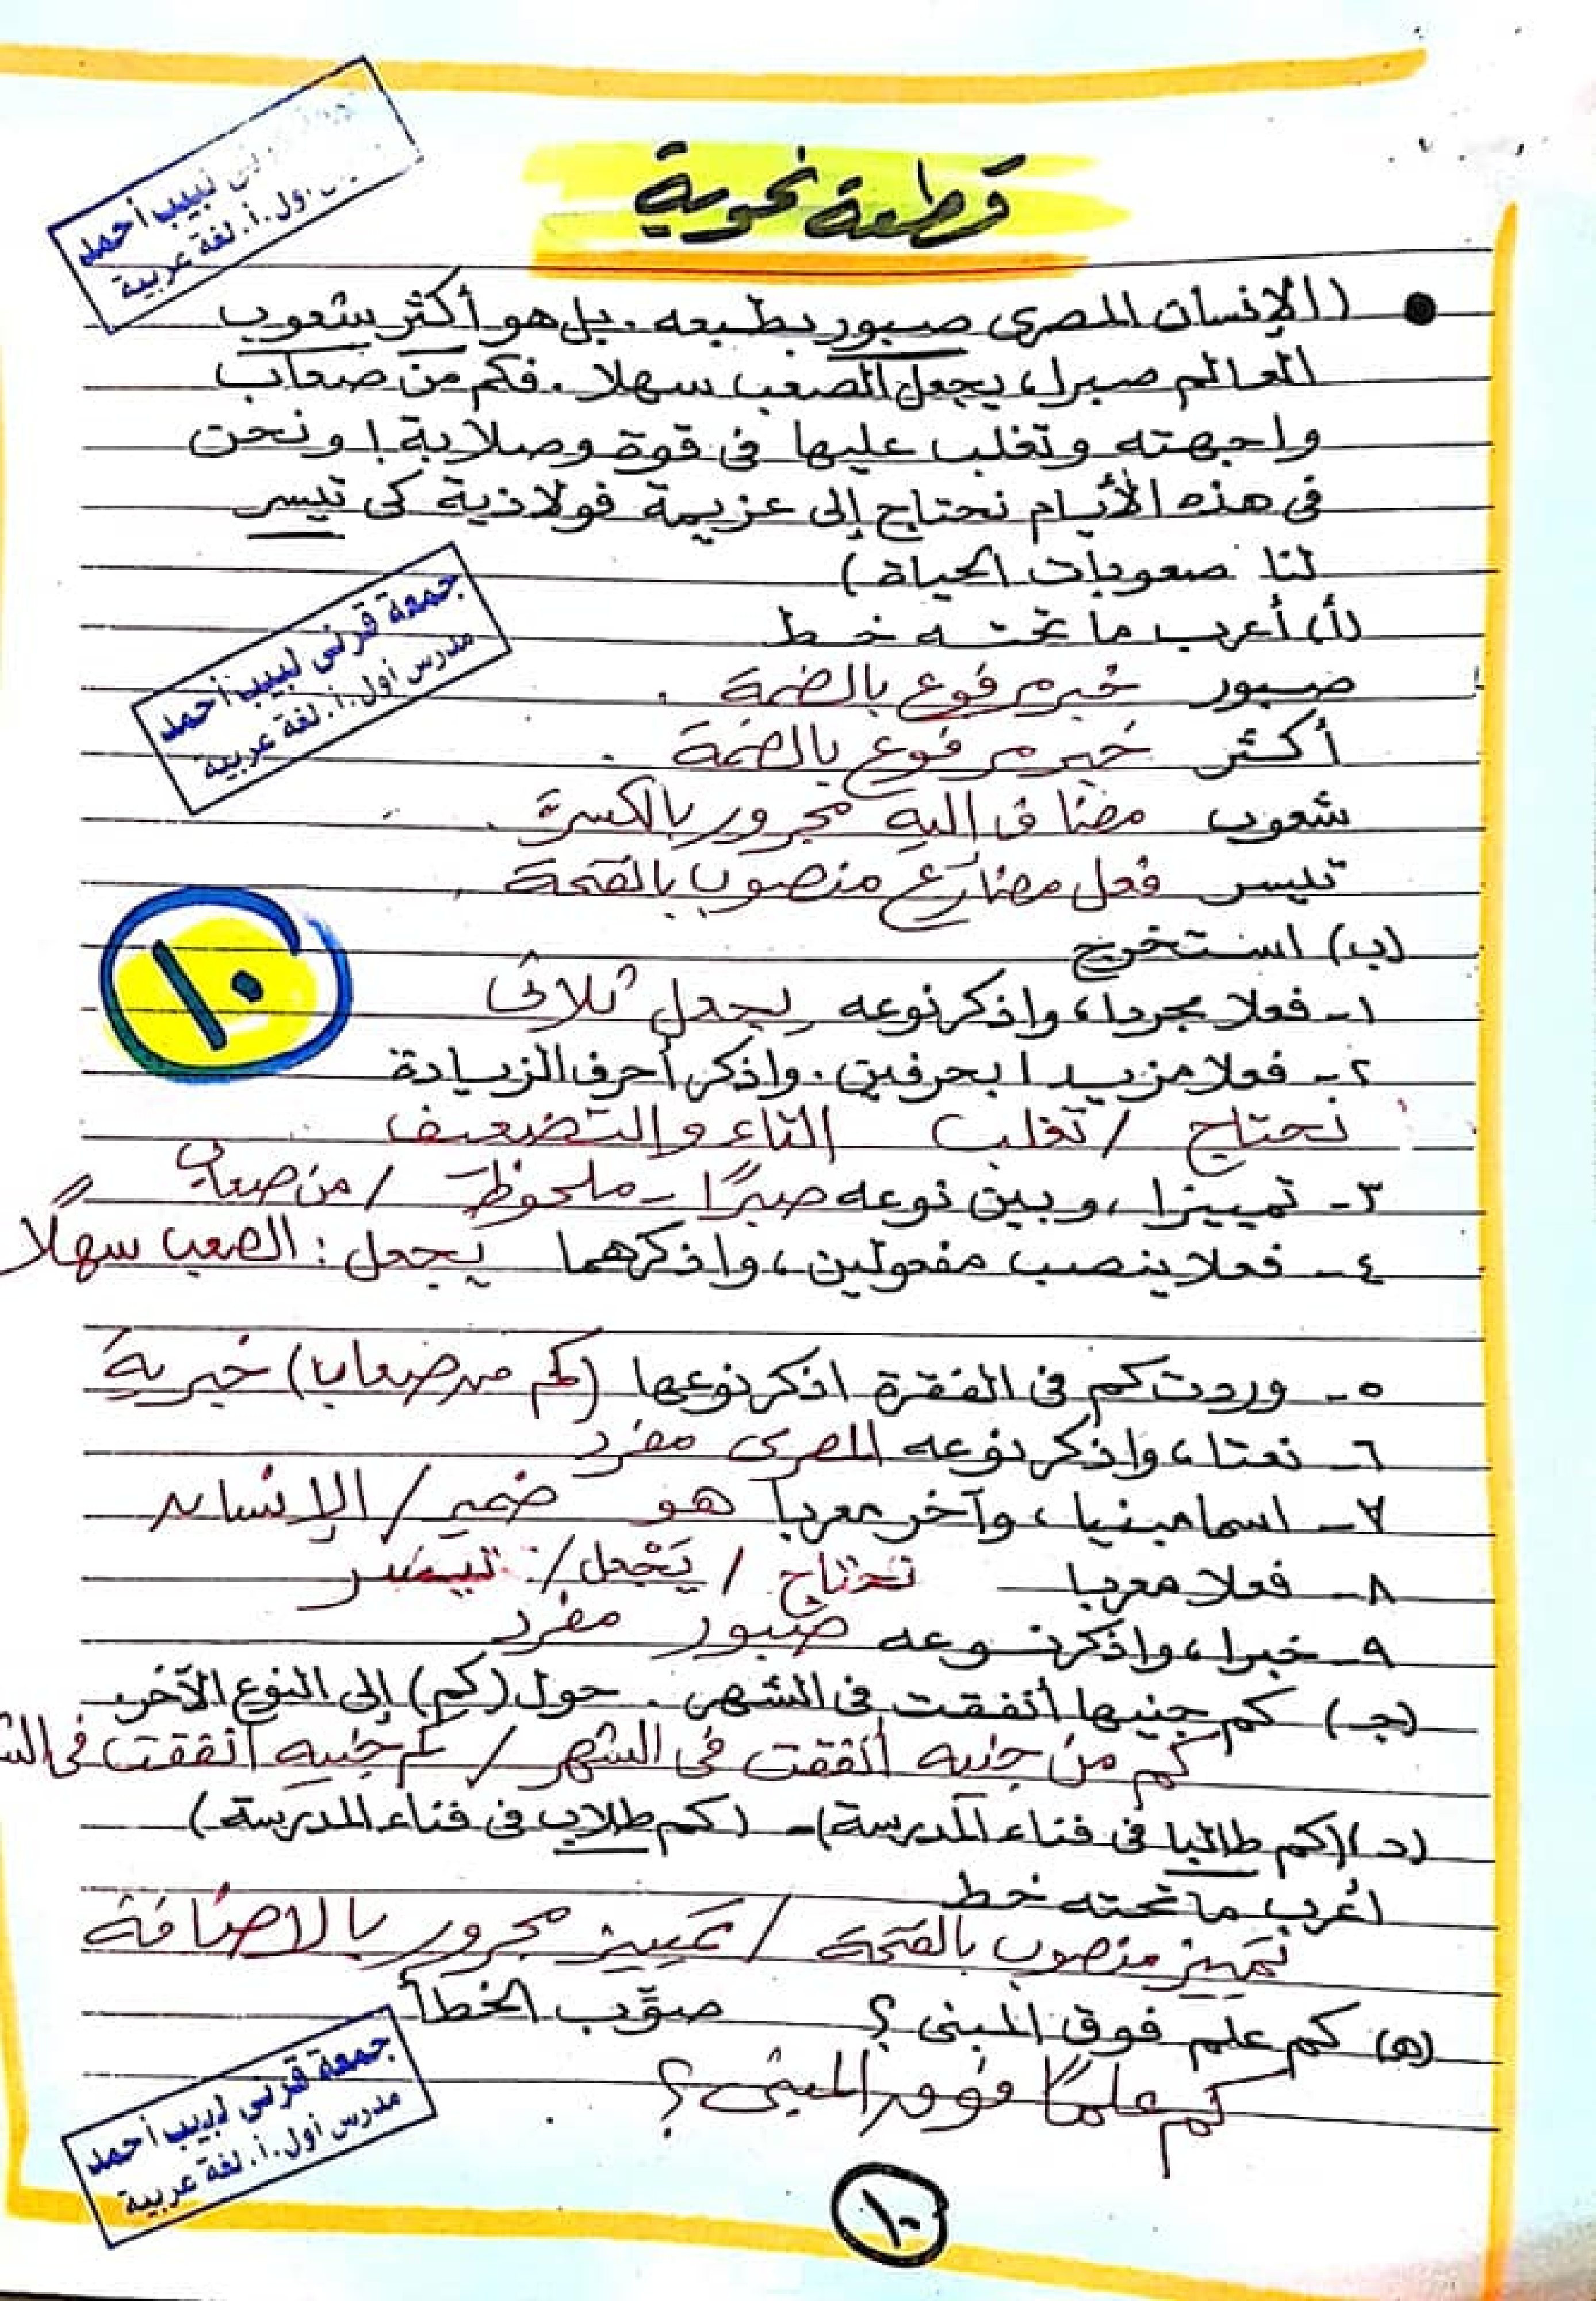 قطعة نحوية
(الإنسان المصرى صبور بطبعه . بل هو أكثر شعوب
العالم صبرا، يجعل الصعب سهلا . فكم من صعاب
واجهته وتغلب عليها فى قوة وصلابة ! ونحن
فى هذه الأيام نحتاج إلى عزيمة فولاذية كى تيسر
لنا صعوبات الحياة )
(أ) أعرب ما تحته خط
صبور خبر مرفوع بالضمة .
أكثر خبر مرفوع بالضمة .
شعوب مضاف إليه مجرور بالكسرة .
تيسر فعل مضارع منصوب بالفتحة .
(ب) استخرج
١- فعلا مجردا، واذكر نوعه يجعل ثلاثى
٢- فعلا مزيدا بحرفين . واذكر أحرف الزيادة
نحتاج / تغلب التاء والتضعيف
٣- تمييزا ، وبين نوعه صبرًا - ملحوظ / من صعاب
٤- فعلا ينصب مفعولين ، واذكرهما يجعل : الصعب سهلًا
٥- وردت كم فى الفقرة اذكر نوعها (كم من صعاب) خبرية
٦- نعتا ، واذكر نوعه المصرى مفرد
٧- اسما مبنيا ، وآخر معربا هو ضمير / الإنسان
٨- فعلا معربا نحتاج / يَجْعل / تيسر
٩- خبرا ، واذكر نوعه صبور مفرد
(جـ) كم جنيها أنفقت فى الشهر . حول (كم) إلى النوع الآخر
كم من جنيه أنفقت فى الشهر / كم جنيهٍ أنفقت فى الش
(د) (كم طالبا فى فناء المدرسة) - (كم طلاب فى فناء المدرسة)
أعرب ما تحته خط
تمييز منصوب بالفتحة / تمييز مجرور بالاضافة
(هـ) كم علم فوق المبنى ؟ صوِّب الخطأ
كم علمًا فوق المبنى ؟
١٠
١٠
لبيب أحمد
أول .أ. لغة عربية
جمعة قرنى لبيب أحمد
مدرس أول .أ. لغة عربية
جمعة قرنى لبيب أحمد
مدرس أول .أ. لغة عربية